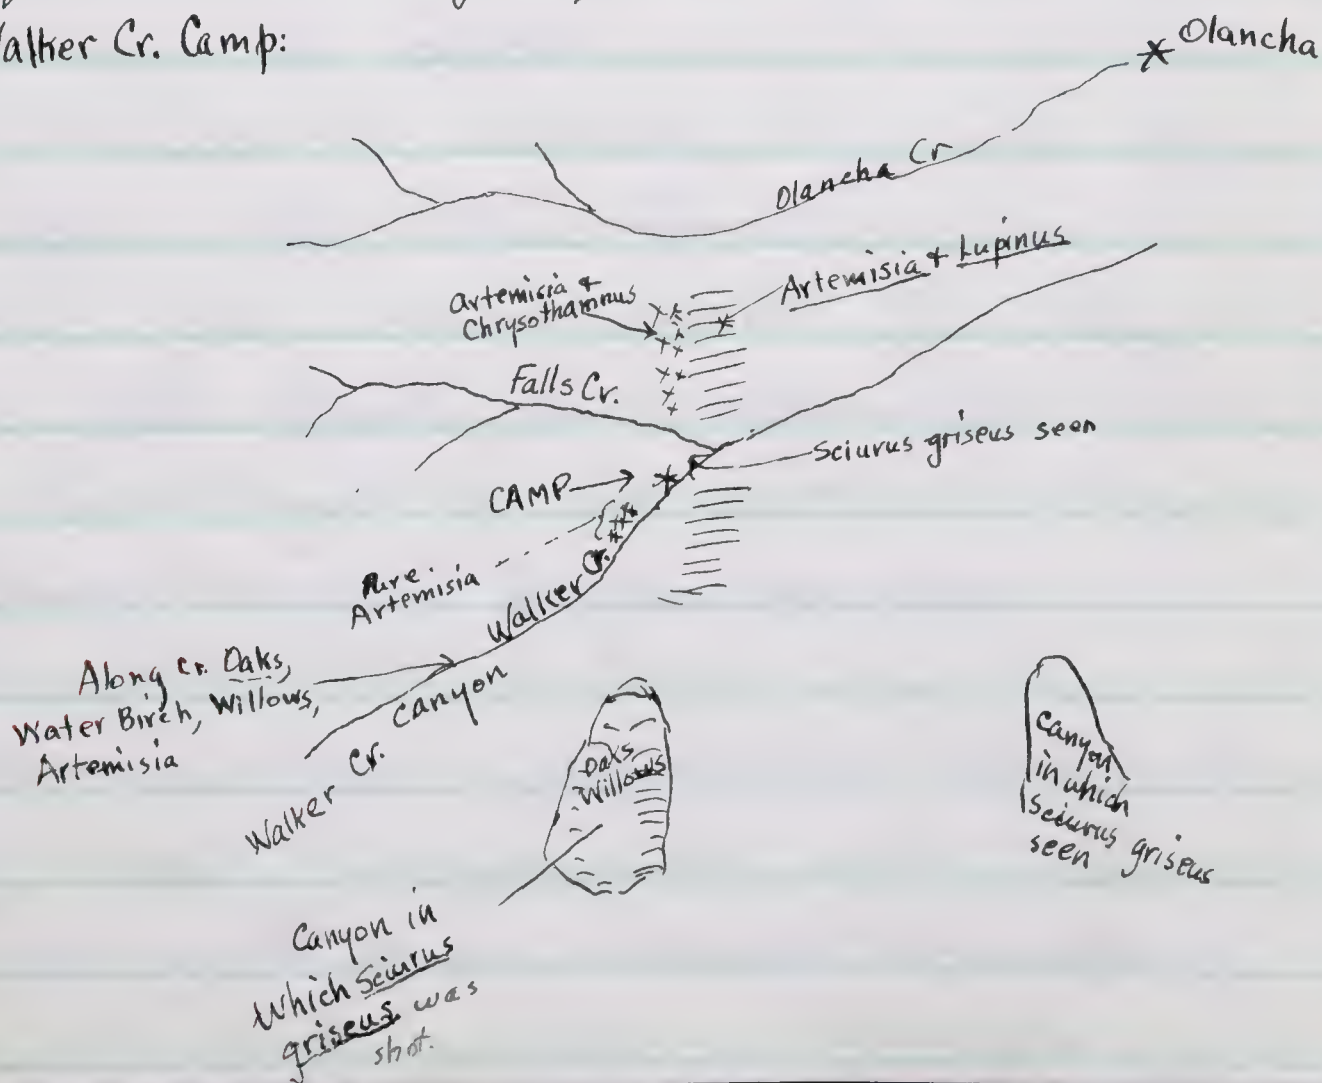 Walker Cr. Camp:
Olancha
Olancha Cr
Artemisia & Lupinus
Artemisia &
Chrysothamnus
Falls Cr.
Sciurus griseus seen
CAMP
Pure
Artemisia
Walker Cr.
Along Cr. Oaks,
Water Birch, Willows,
Artemisia
Walker Cr. Canyon
Oaks
Willows
Canyon
in which
Sciurus griseus
seen
Canyon in
which Sciurus
griseus was
shot.